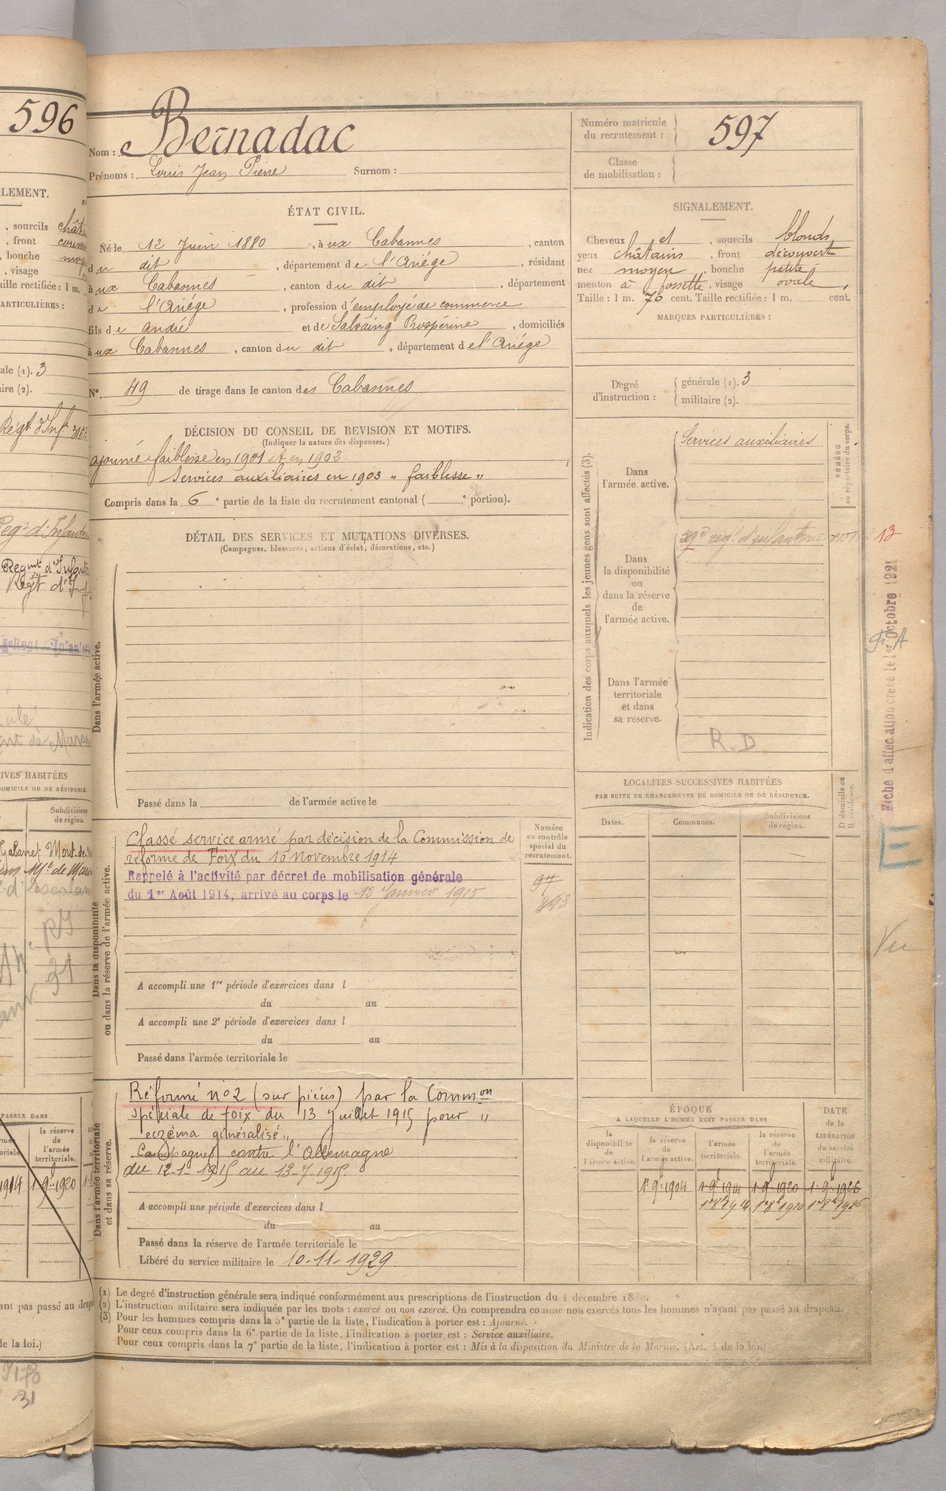 596
Nom : Bernadac
Prénoms : Louis Jean Pierre Surnom :
Numéro matricule
du recrutement :
597
Classe
de mobilisation :
ÉTAT CIVIL.
Né le 12 Juin 1880, à ux Cabannes, canton
du dit, département de l'Ariège, résidant
à ux Cabannes, canton du dit, département
de l'Ariège, profession d'employé de commerce
fils de André et de Salvaing Prospérine, domiciliés
à ux Cabannes, canton du dit, département de l'Ariège
N° 49 de tirage dans le canton des Cabannes
SIGNALEMENT.
Cheveux et, sourcils blonds
yeux châtains, front découvert
nez moyen, bouche petite
menton à fossette, visage ovale,
Taille : 1 m. 70 cent. Taille rectifiée : 1 m. cent.
MARQUES PARTICULIÈRES :
Degré
d'instruction :
générale (1). 3
militaire (2).
DÉCISION DU CONSEIL DE REVISION ET MOTIFS.
(Indiquer la nature des dispenses.)
ajourné faiblesse en 1901 et en 1902.
Services auxiliaires en 1903 " faiblesse "
Compris dans la 6e partie de la liste du recrutement cantonal ( e portion).
DÉTAIL DES SERVICES ET MUTATIONS DIVERSES.
(Campagnes, blessures, actions d'éclat, décorations, etc.)
Dans l'armée active.
Passé dans la de l'armée active le
Indication des corps auxquels les jeunes gens sont affectés (3).
NUMÉRO
au répertoire du corps.
Dans
l'armée active.
Services auxiliaires
Dans
la disponibilité
ou
dans la réserve
de
l'armée active.
reg. d'infanterie
13
Dans l'armée
territoriale
et dans
sa réserve.
R.D
Fiche d'affectation créée le 1er Octobre 1921
E
Vu
LOCALITÉS SUCCESSIVES HABITÉES
PAR SUITE DE CHANGEMENTS DE DOMICILE OU DE RÉSIDENCE.
Dates.
Communes.
Subdivisions
de région.
D domicile ou
R résidence.
Dans la disponibilité
ou dans la réserve de l'armée active.
Numéro
au contrôle
spécial du
recrutement.
Classé service armé par décision de la Commission de
réforme de Foix du 10 novembre 1914
Rappelé à l'activité par décret de mobilisation générale
du 1er Août 1914, arrivé au corps le 12 Janvier 1915
A accompli une 1re période d'exercices dans l
du au
A accompli une 2e période d'exercices dans l
du au
Passé dans l'armée territoriale le
Dans l'armée territoriale
et dans sa réserve.
Réformé n°2 (sur pièces) par la Common
spéciale de Foix du 13 Juillet 1915 pour "
eczéma généralisé "
Campagnes contre l'Allemagne
du 12-1-1915 au 13-7-1915
A accompli une période d'exercices dans l
du au
Passé dans la réserve de l'armée territoriale le
Libéré du service militaire le 10-11-1929
ÉPOQUE
À LAQUELLE L'HOMME DOIT PASSER DANS
DATE
de la
LIBÉRATION
du service
militaire.
la
disponibilité
de
l'armée active.
la réserve
de
l'armée active.
l'armée
territoriale.
la réserve
de
l'armée
territoriale.
1r 9e 1904
(1) Le degré d'instruction générale sera indiqué conformément aux prescriptions de l'instruction du 4 décembre
(2) L'instruction militaire sera indiquée par les mots : exercé ou non exercé. On comprendra comme non exercés tous les hommes n'ayant pas passé au drapeau.
(3) Pour les hommes compris dans la 5e partie de la liste, l'indication à porter est : Ajourné.
Pour ceux compris dans la 6e partie de la liste, l'indication à porter est : Service auxiliaire.
Pour ceux compris dans la 7e partie de la liste, l'indication à porter est : Mis à la disposition du Ministre de la Marine. (Art. 4 de la loi.)